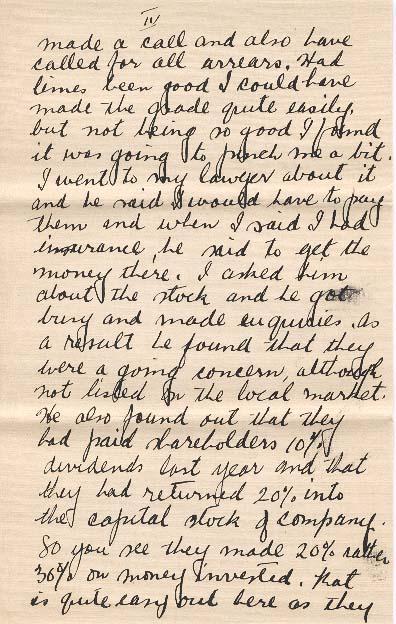 IV
made a call and also have
called for all arrears. Had
times been good I could have
made the grade quite easily,
but not being so good I found
it was going to pinch me a bit.
I went to my lawyer about it
and he said I would have to pay
them and when I said I had
insurance, he said to get the
money there. I asked him
about the stock and he got
busy and made enquiries. as
a result he found that they
were a going concern, although
not listed on the local market.
He also found out that they
had paid shareholders 10%
dividends last year and that
they had returned 20% into
the capital stock of company.
So you see they made 20% rather
30% on money invested. That
is quite easy out here as they